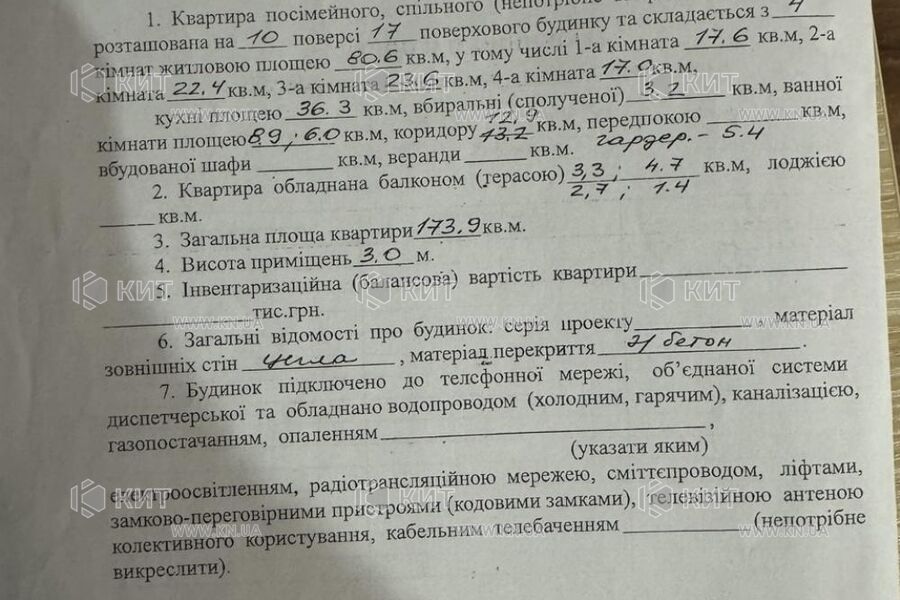 1. Квартира посімейного, спільного (непотрібне
розташована на 10 поверсі 17 поверхового будинку та складається з 4
кімнат житловою площею 80.6 кв.м, у тому числі 1-а кімната 17.6 кв.м, 2-а
кімната 22.4 кв.м, 3-а кімната 23.6 кв.м, 4-а кімната 17.0 кв.м,
кухні площею 36.3 кв.м, вбиральні (сполученої) 3.2 кв.м, ванної
12,9
кімнати площею 8.9; 6.0 кв.м, коридору 13.2 кв.м, передпокою кв.м,
вбудованої шафи кв.м, веранди кв.м. гардер. - 5.4
2. Квартира обладнана балконом (терасою) 3,3; 4.7 кв.м, лоджією
2,7; 1.4
кв.м.
3. Загальна площа квартири 173,9 кв.м.
4. Висота приміщень 3,0 м.
5. Інвентаризаційна (балансова) вартість квартири
тис.грн.
6. Загальні відомості про будинок: серія проекту , матеріал
зовнішніх стін , матеріал перекриття бетон .
7. Будинок підключено до телефонної мережі, об’єднаної системи
диспетчерської та обладнано водопроводом (холодним, гарячим), каналізацією,
газопостачанням, опаленням ,
(указати яким)
електроосвітленням, радіотрансляційною мережею, сміттєпроводом, ліфтами,
замково-переговірними пристроями (кодовими замками), телевізійною антеною
колективного користування, кабельним телебаченням (непотрібне
викреслити).
КИТ
WWW.KN.UA